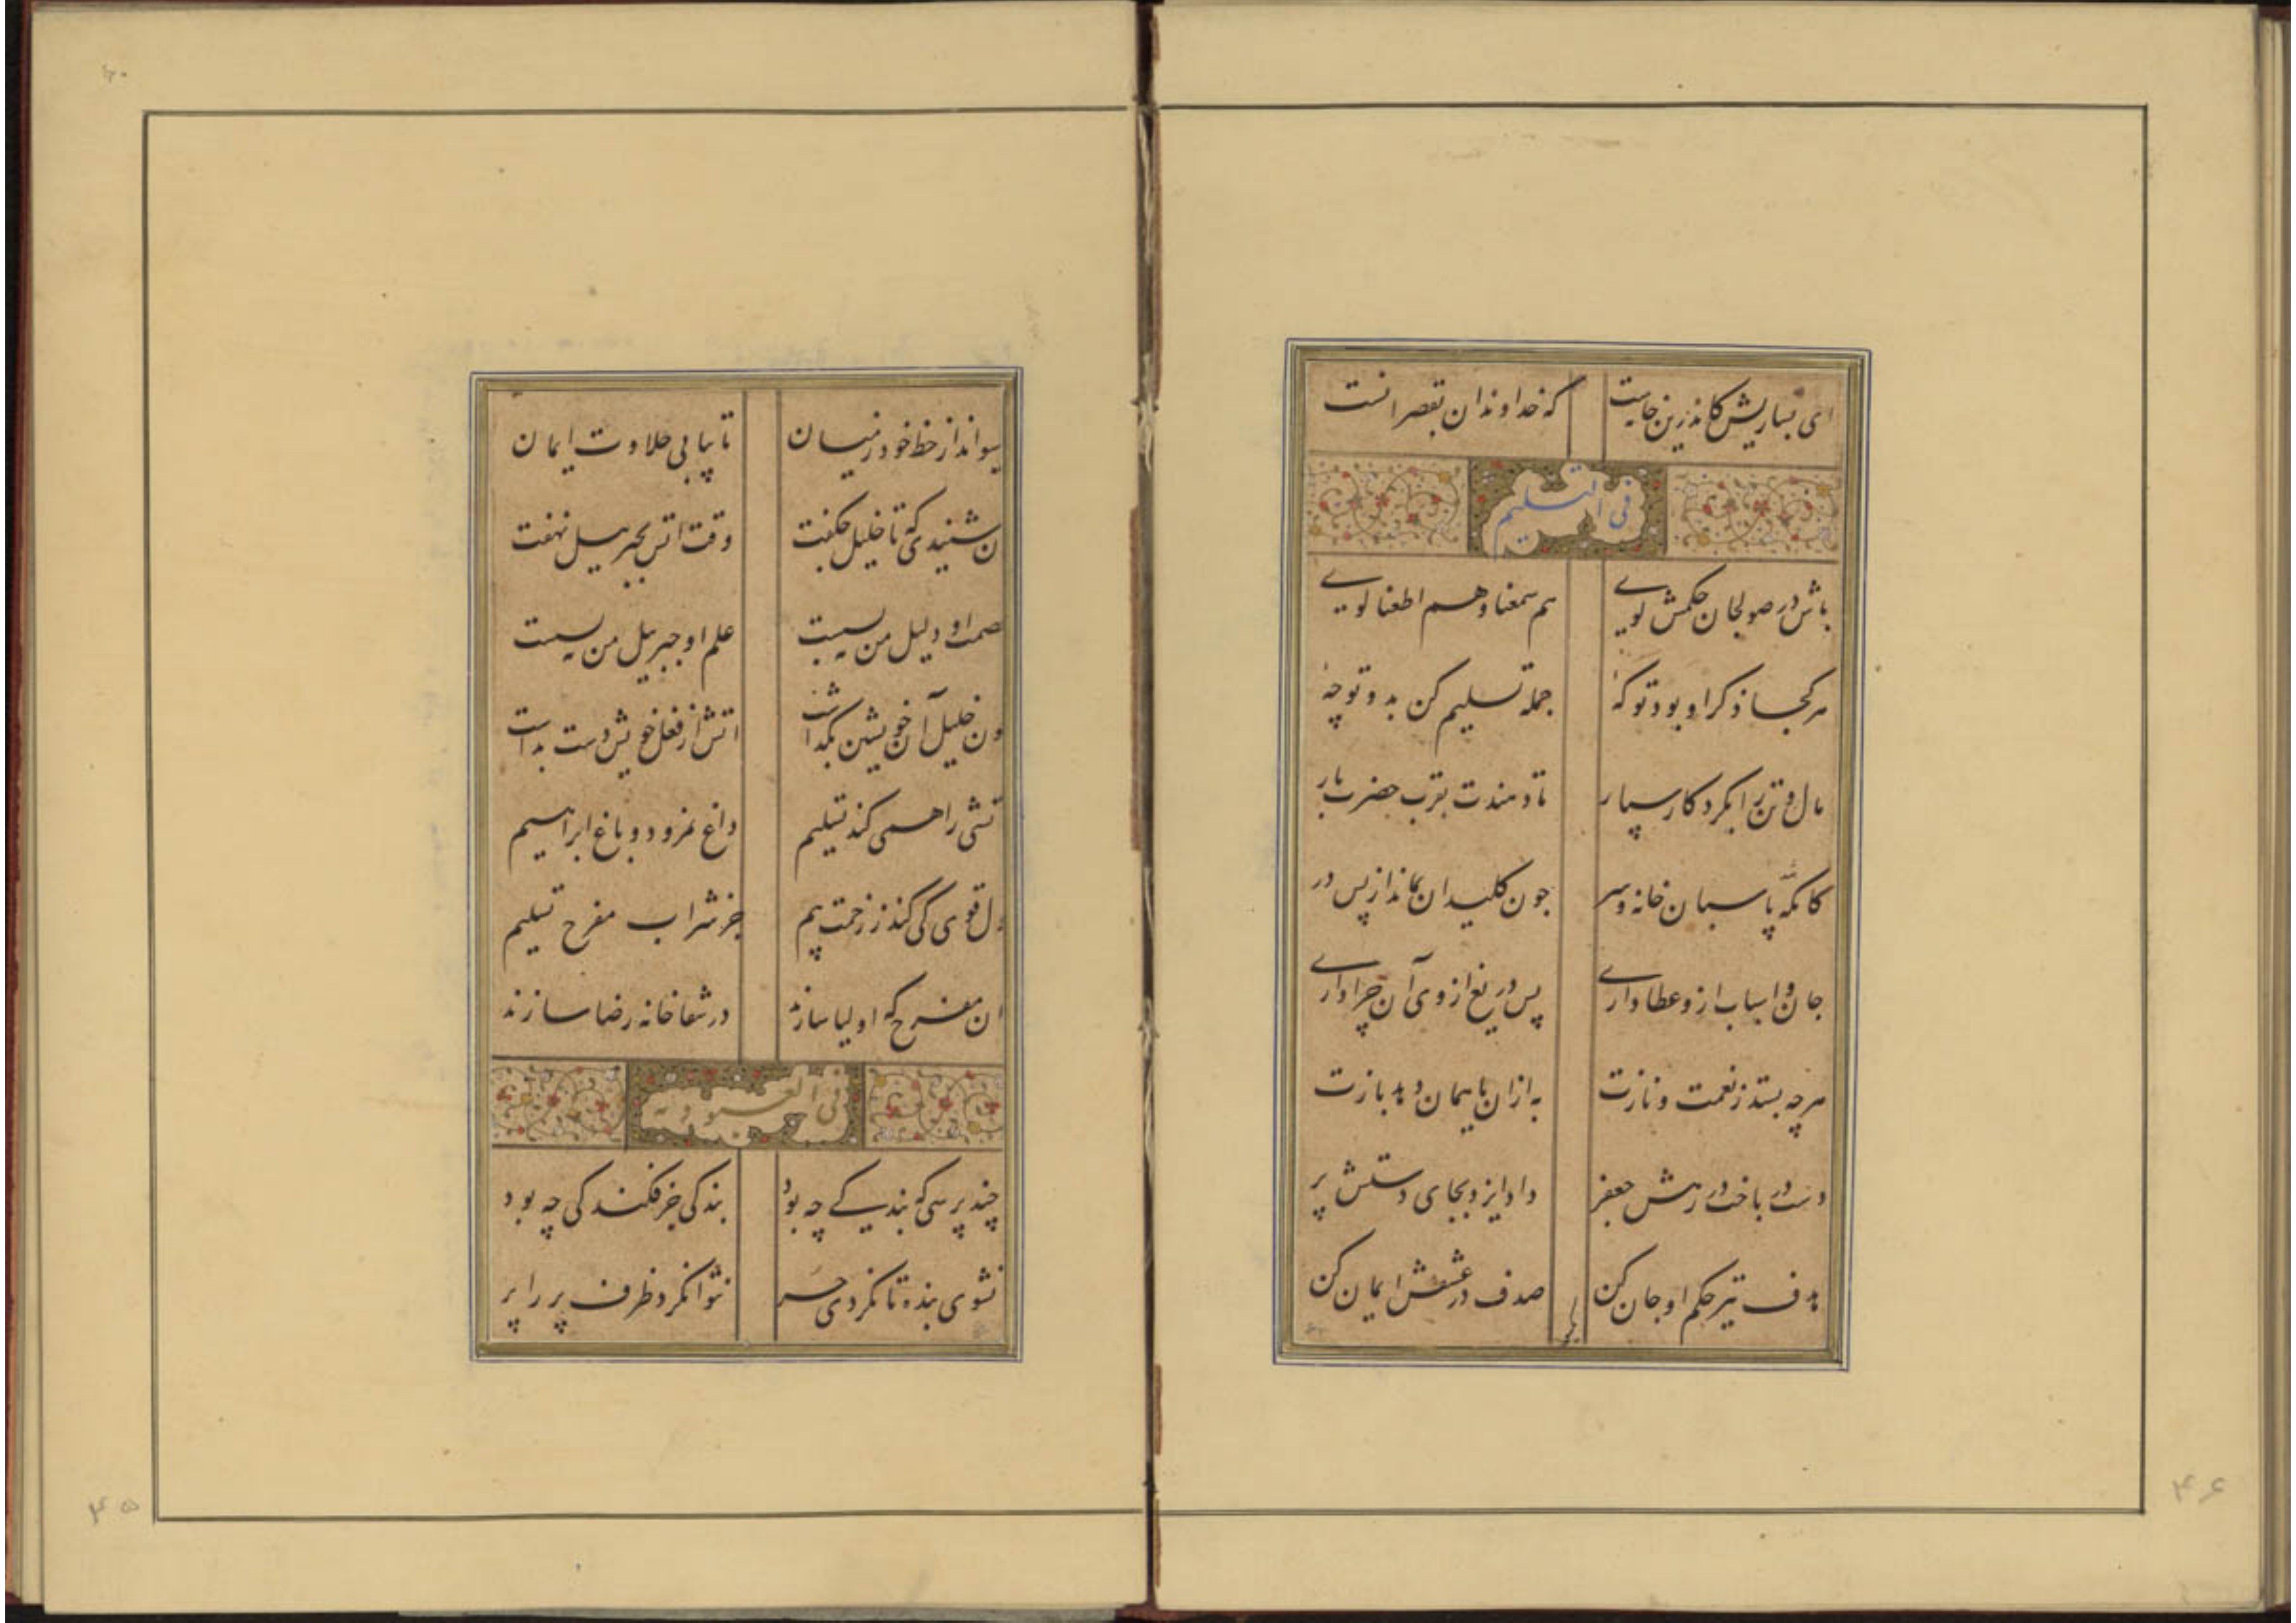 ای بسا ریش کاندرین خانست که خداوند آن بقصر آنست
فی التسلیم
باش در صولجان حکمش گوی هم سمعنا و هم اطعنا گوی
هر کجا ذکر او بود تو که جمله تسلیم کن بدو تو چه
مال و تن را بکردکار سپار تا دهندت بقرب حضرت بار
کانکه پاسبان خانه و سر جون کلیدان بماند از پس در
جان و اسباب ازو عطا داری پس دریغ از وی آن چرا داری
هرچه بستد ز نعمت و نازت به ازان یا همان دهد بازت
دست در باخت در رهش جعفر داد ایزد بجای دستش پر
هدف تیر حکم او جان کن صدف در عشقش ایمان کن
سو انداز حظ خود ز میان تا بیابی حلاوت ایمان
ن شنیدی که تا خلیل چکفت وقت اتش بجبرییل نهفت
صمت او دلیل من نیست علم او جبرییل من نیست
ون خلیل آن خویشتن بکذاشت اتش از فعل خویش دست بداشت
تشی را همی کند تسلیم داغ نمرود و باغ ابراهیم
دل قوی کی کند ز زحمت بیم جز شراب مفرح تسلیم
ان مفرح که اولیا سازند در شفاخانه رضا سازند
فی العبودیه
چند پرسی که بندکی چه بود بندکی جز فکندکی چه بود
نشوی بنده تا نکردی حر نتوان کرد ظرف پر را پر
۴۵
۴۶